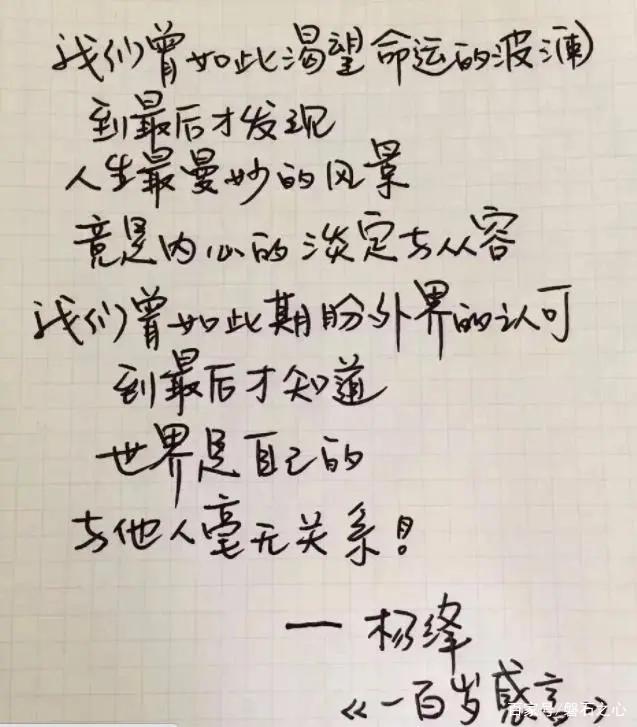 我们曾如此渴望命运的波澜
到最后才发现
人生最曼妙的风景
竟是内心的淡定与从容
我们曾如此期盼外界的认可
到最后才知道
世界是自己的
与他人毫无关系！
— 杨绛
《一百岁感言
百家号/磐石之心